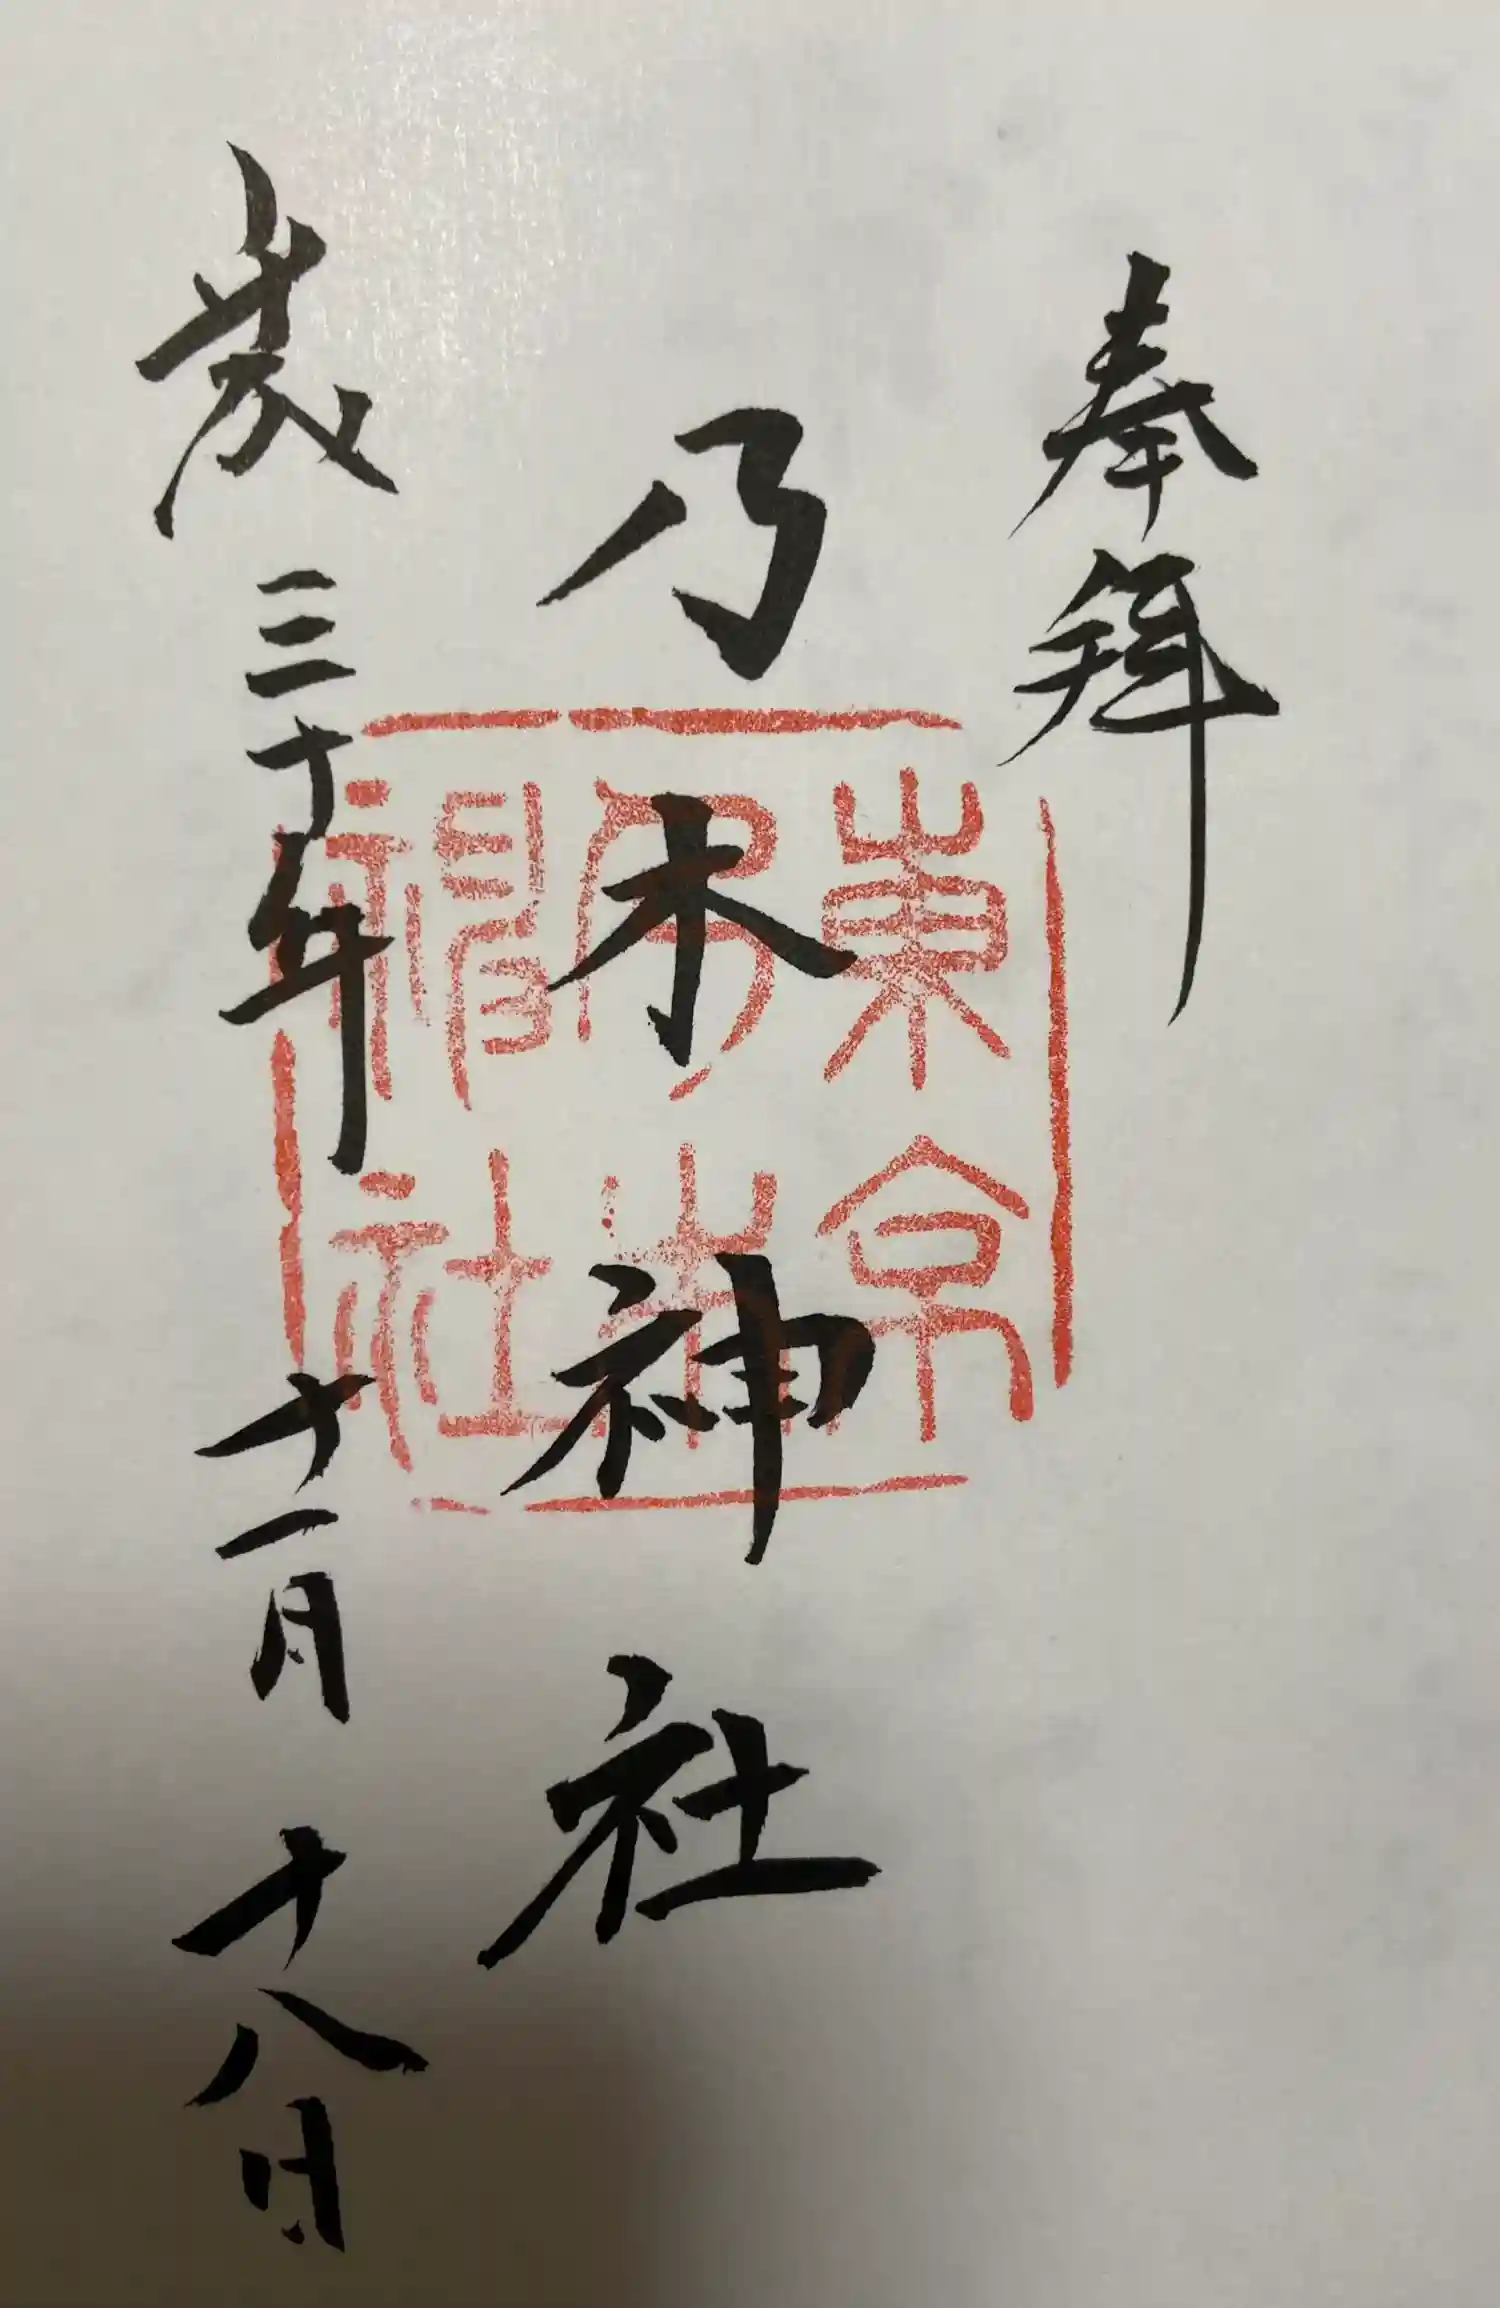 奉拜
乃木神社
歳三十年十一月十八日
東京
乃木
神社